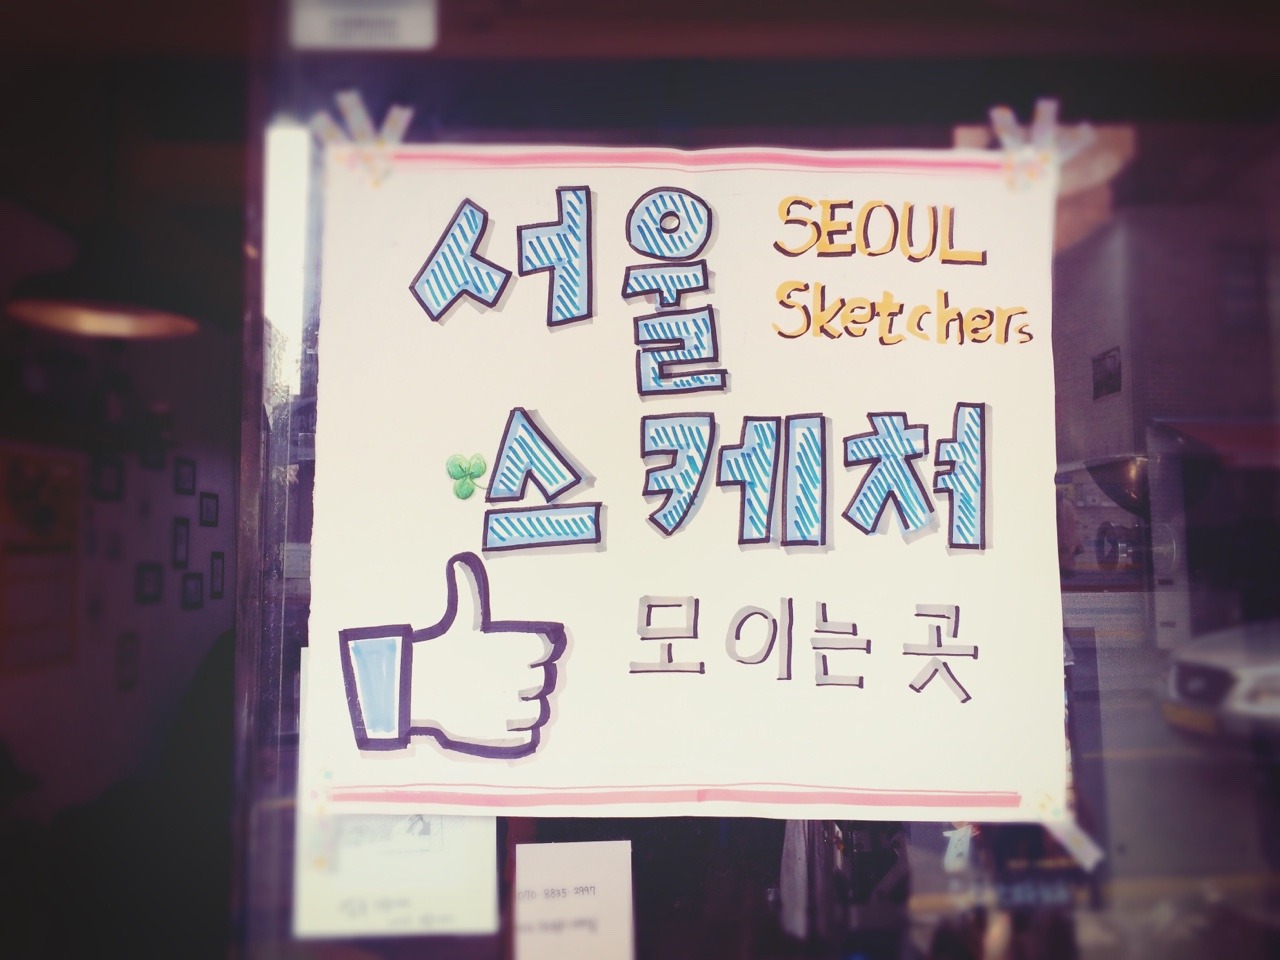 서울
SEOUL
Sketchers
스케쳐
모이는 곳
070 8835 2997